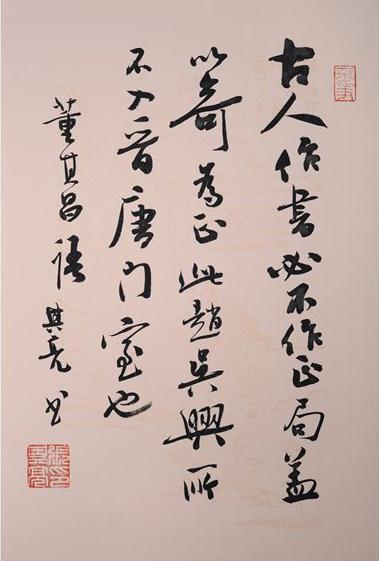 古人作書必不作正局蓋
以奇為正此趙吳興所
不入晉唐門室也
董其昌語 亮书